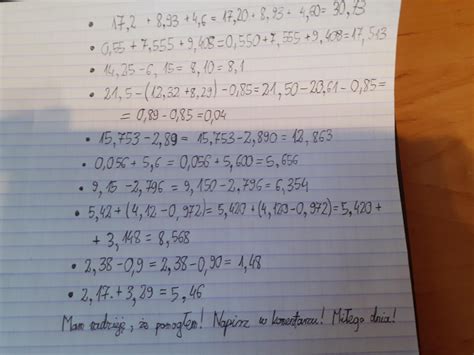 • 17,2 + 8,93 + 4,6 = 17,20 + 8,93 + 4,60 = 30,73
• 0,55 + 7,555 + 9,408 = 0,550 + 7,555 + 9,408 = 17,513
• 14,25 - 6,15 = 8,10 = 8,1
• 21,5 - (12,32 + 8,29) - 0,85 = 21,50 - 20,61 - 0,85 =
= 0,89 - 0,85 = 0,04
• 15,753 - 2,89 = 15,753 - 2,890 = 12,863
• 0,056 + 5,6 = 0,056 + 5,600 = 5,656
• 9,15 - 2,796 = 9,150 - 2,796 = 6,354
• 5,42 + (4,12 - 0,972) = 5,420 + (4,120 - 0,972) = 5,420 +
+ 3,148 = 8,568
• 2,38 - 0,9 = 2,38 - 0,90 = 1,48
• 2,17 + 3,29 = 5,46
Mam nadzieję, że pomogłem! Napisz w komentarzu! Miłego dnia!